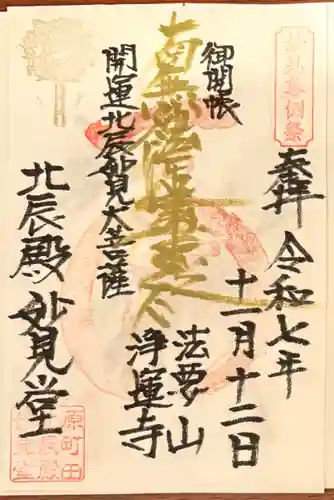 奉拝 令和七年
十一月十二日
御開帳
法要山
浄運寺
南無妙法蓮華経
開運北辰妙見大菩薩
北辰殿妙見堂
原町田